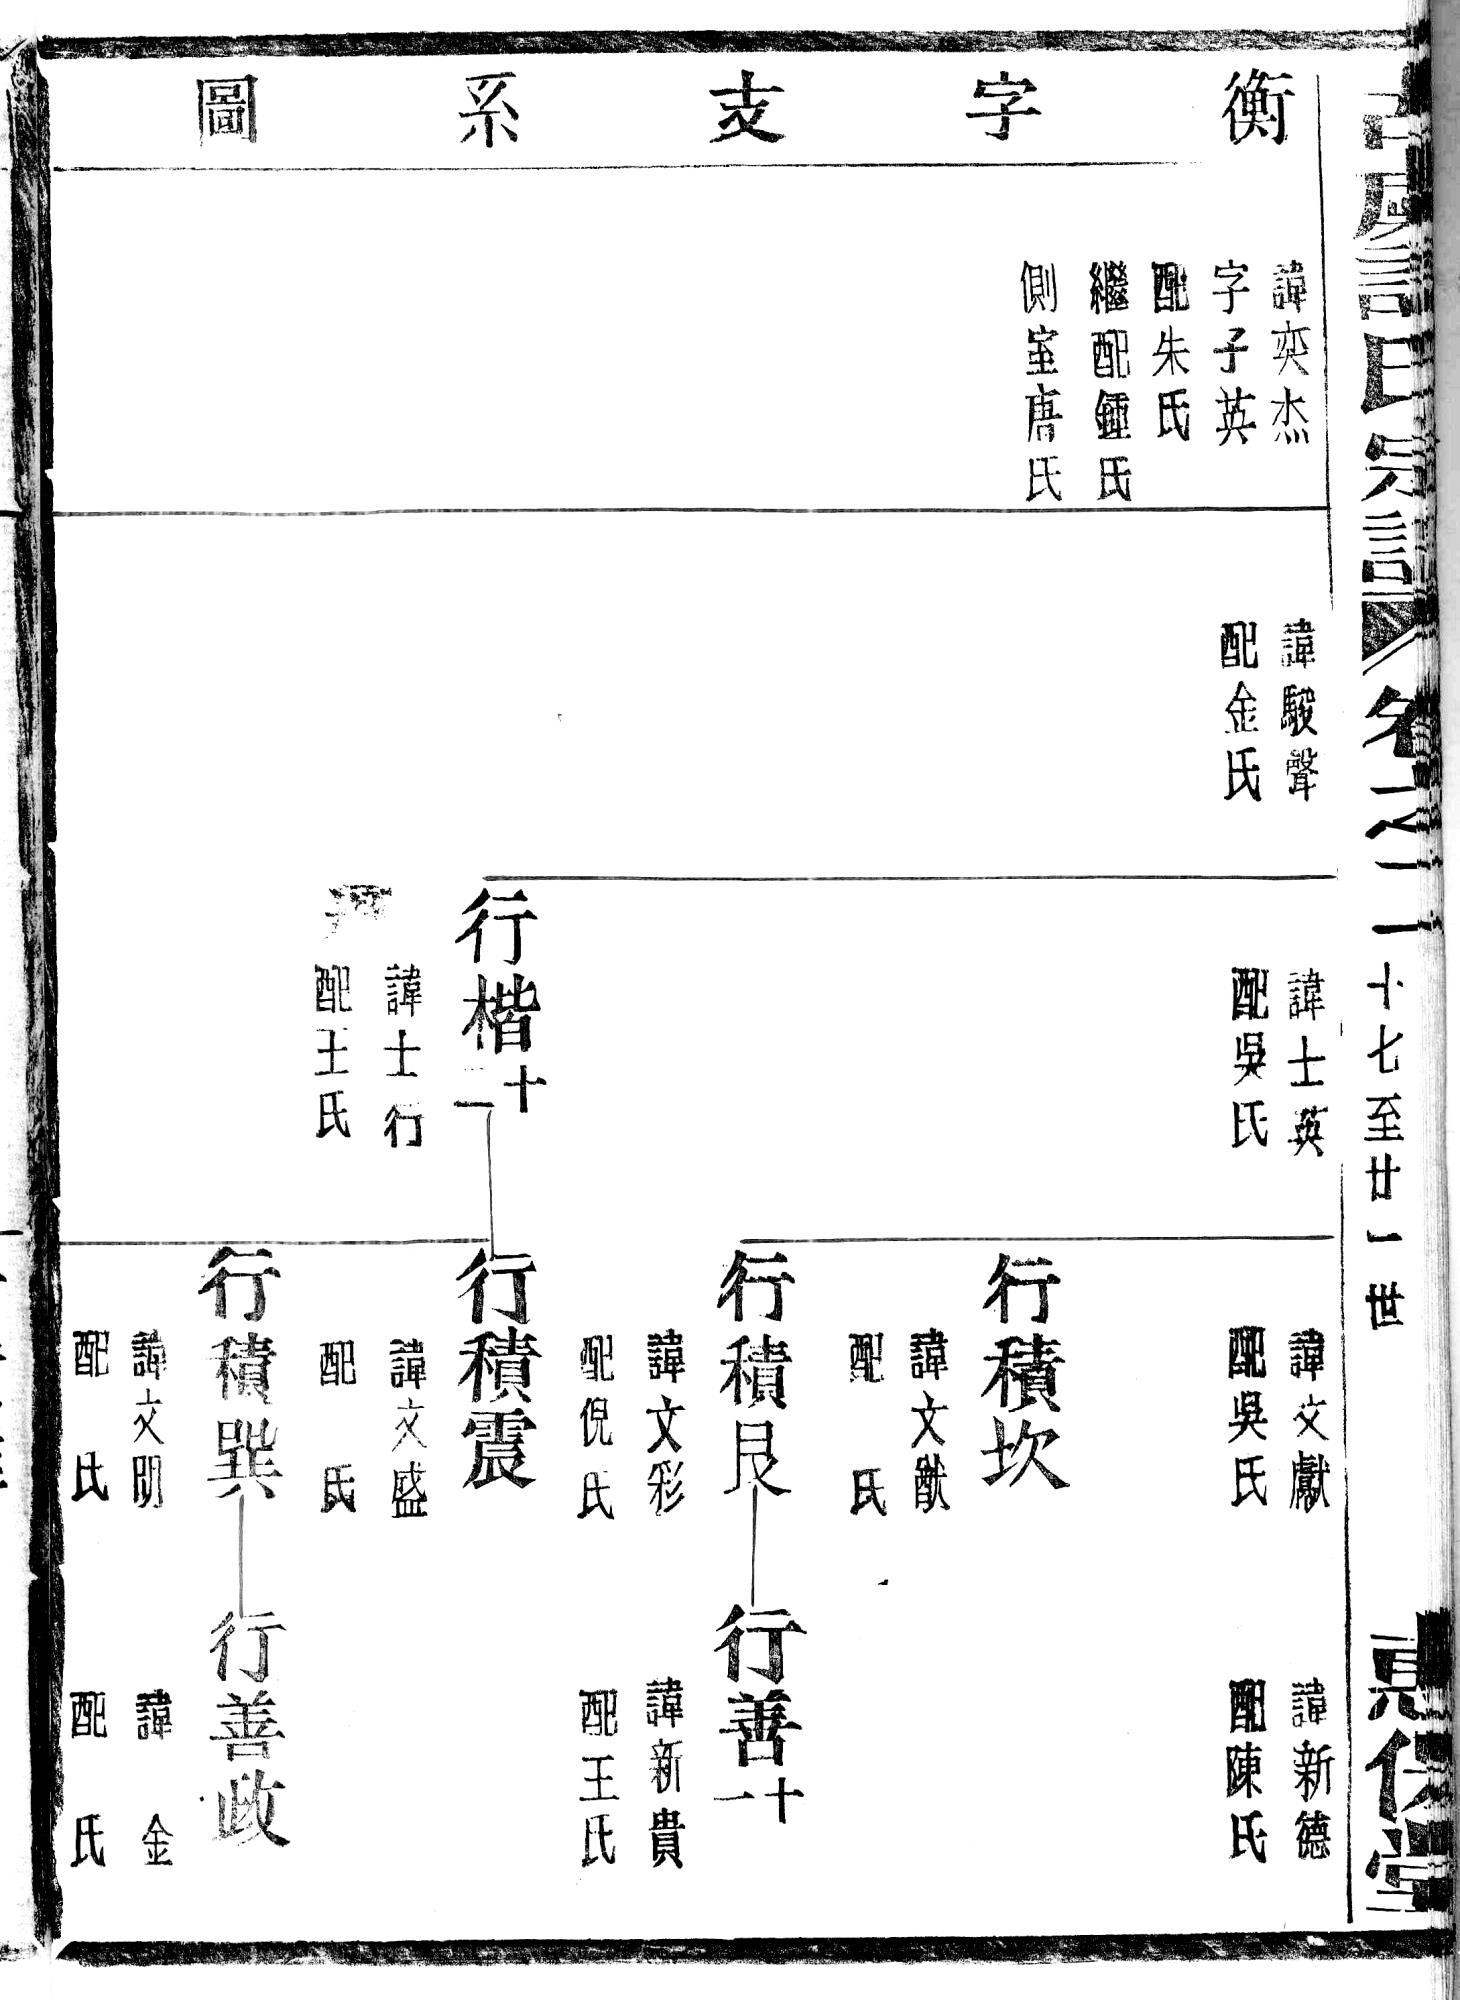 衡字支系圖
氏宗譜
卷之二
十七至廿一世
惠伕堂
諱奕杰
字子英
配朱氏
繼配鍾氏
側室唐氏
諱駿聲
配金氏
諱士英
配吳氏
行楷十二
諱士行
配王氏
諱文獻
配吳氏
行積坎
諱文猷
配 氏
行積艮
諱文彩
配倪氏
行積震
諱文盛
配 氏
行積巽
諱文明
配 氏
諱新德
配陳氏
行善十一
諱新貴
配王氏
行善政
諱 金
配 氏